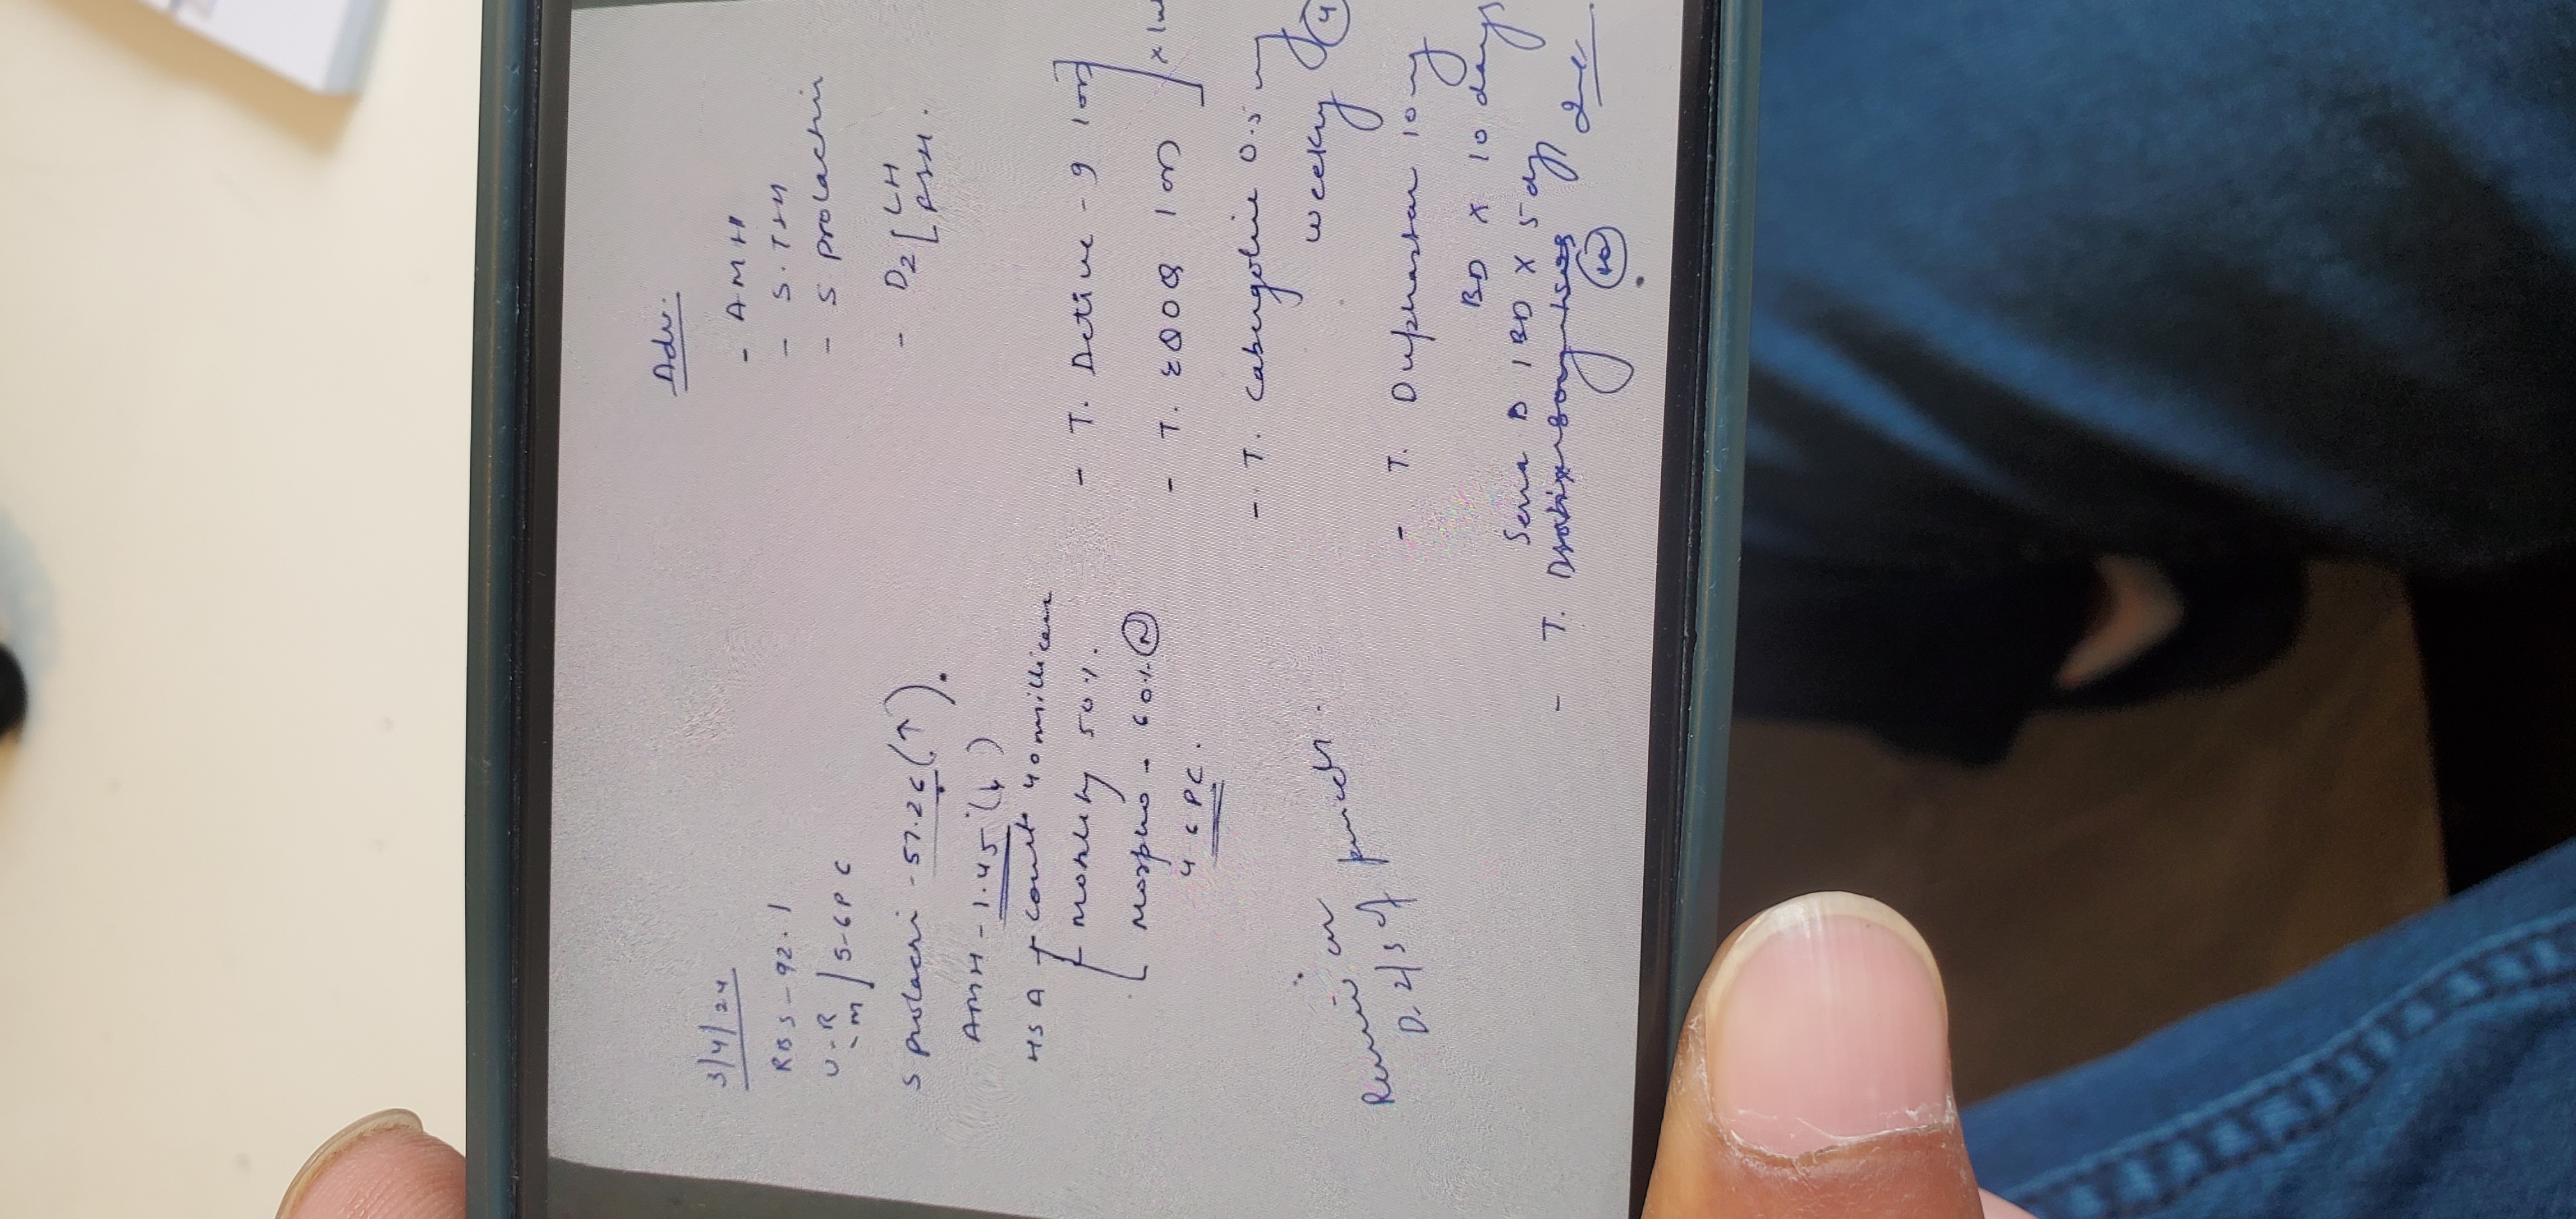 3/4/24
RBS-92.1
U-R
-M / 5-6PC
S prolacri - 57.26 (↑).
AMH - 1.45 (↓)
HSA count 40 million
motility 50%.
morpho - 60%. (N)
4-6 PC.
Review on
D 2/3 of periods.
Adv.
- AMH
- S. TSH
- S prolactin
- D2 [ LH
FSH.
- T. Dctive-9 1 OD
- T. EQOQ 1 OD
- T. Cabergoline 0.5 mg
weekly (4)
- T. Duphaston 10mg
BD x 10 days
1 BD x 5 dy
- T.
(10)